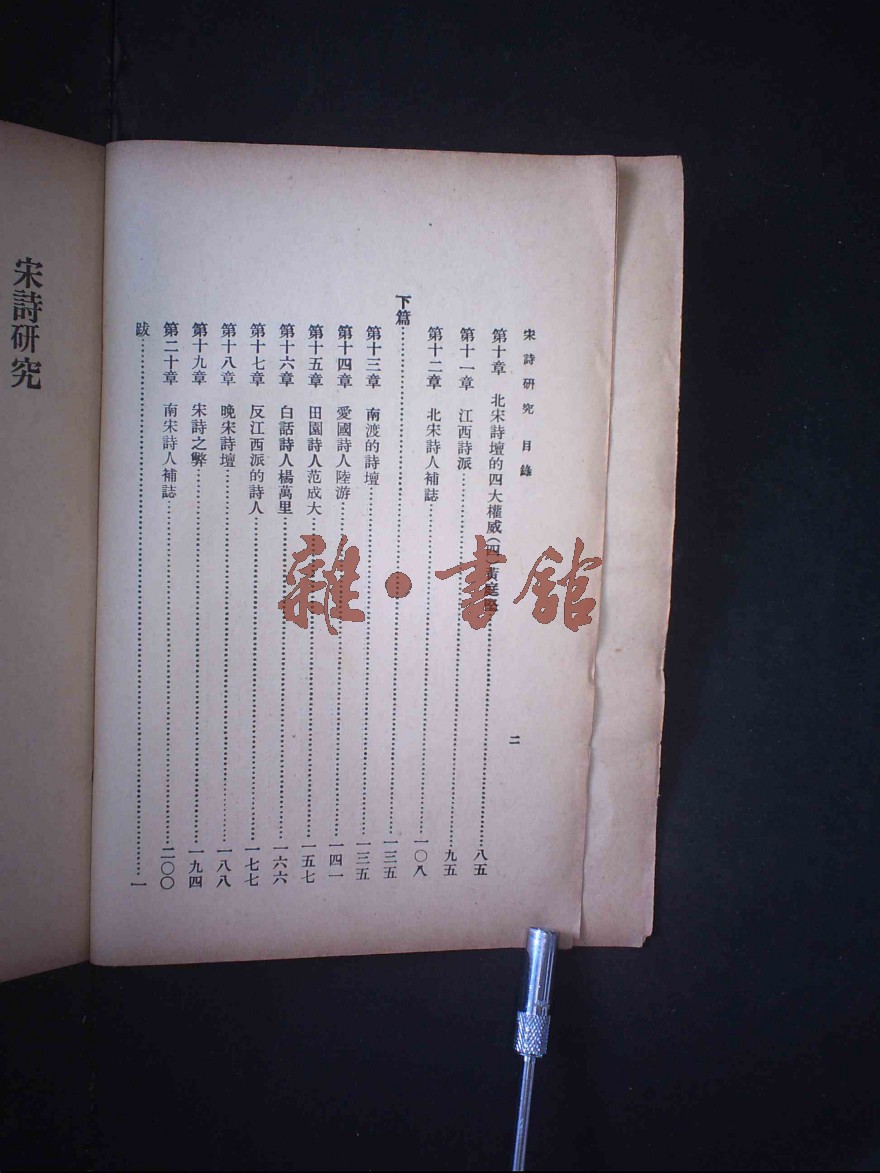 宋詩研究 目錄
二
第十章 北宋詩壇的四大權威(四)黃庭堅……八五
第十一章 江西詩派……九五
第十二章 北宋詩人補誌……一〇八
下篇……一三五
第十三章 南渡的詩壇……一三五
第十四章 愛國詩人陸游……一四一
第十五章 田園詩人范成大……一五七
第十六章 白話詩人楊萬里……一六六
第十七章 反江西派的詩人……一七七
第十八章 晚宋詩壇……一八八
第十九章 宋詩之弊……一九四
第二十章 南宋詩人補誌……二〇〇
跋……一
宋詩研究
雜·書館